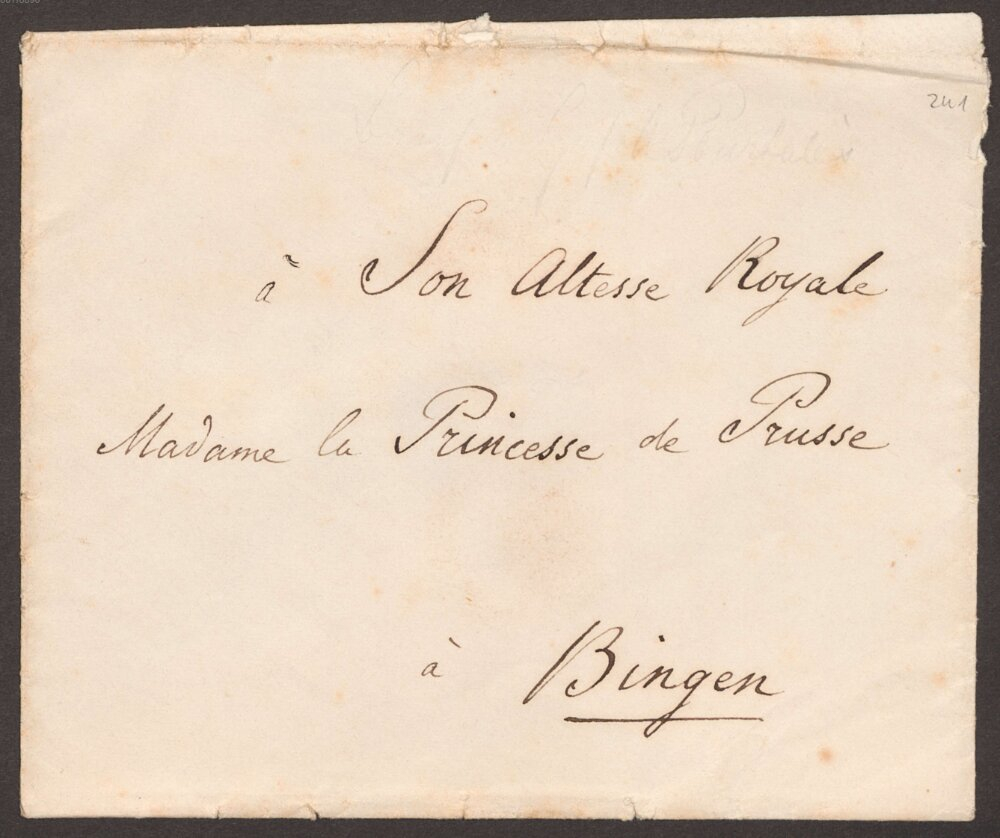 241
à Son Altesse Royale
Madame la Princesse de Prusse
à Bingen